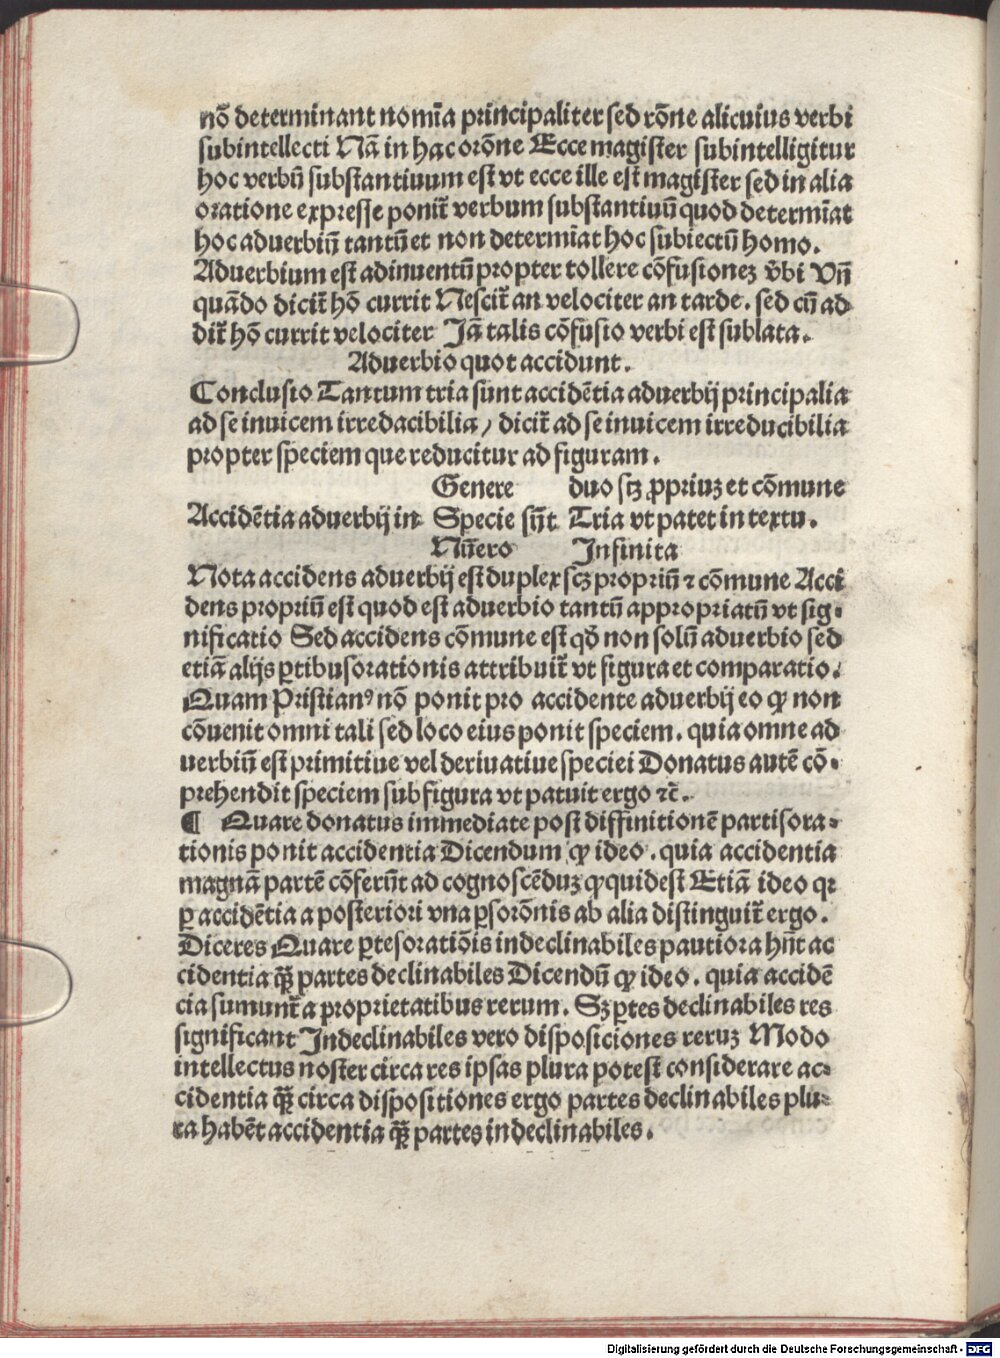 nō determinant nomīa principaliter sed rōne alicuius verbi
subintellecti Nā in hac orōne Ecce magister subintelligitur
hoc verbū substantiuum est vt ecce ille est magister sed in alia
oratione expresse ponit᷑ verbum substantiuū quod determīat
hoc aduerbiū tantū et non determīat hoc subiectū homo.
Aduerbium est adinuentū propter tollere cōfusionez v̄bi Vn̄
quādo dicit᷑ hō currit Nescit᷑ an velociter an tarde. sed cū ad
dit᷑ hō currit velociter Jā talis cōfusio verbi est sublata.
Aduerbio quot accidunt.
Conclusio Tantum tria sunt accidētia aduerbij principalia
ad se inuicem irredacibilia / dicit᷑ ad se inuicem irreducibilia
propter speciem que reducitur ad figuram.
Genere duo scꝫ ꝓpriuz et cōmune
Accidētia aduerbij in Specie sūt Tria vt patet in textu.
Nūero Infinita
Nota accidens aduerbij est duplex scꝫ propriū ⁊ cōmune Acci
dens propriū est quod est aduerbio tantū appropriatū vt sig⸗
nificatio Sed accidens cōmune est qd̄ non solū aduerbio sed
etiā alijs ꝑtibus orationis attribuit᷑ vt figura et comparatio.
Quam Pristianꝰ nō ponit pro accidente aduerbij eo ꝙ non
cōuenit omni tali sed loco eius ponit speciem. quia omne ad
uerbiū est primitiue vel deriuatiue speciei Donatus autē cō⸗
prehendit speciem sub figura vt patuit ergo ⁊c̄.
¶ Quare donatus immediate post diffinitionē partis ora⸗
tionis ponit accidentia Dicendum ꝙ ideo. quia accidentia
magnā partē cōferūt ad cognoscēduz ꝙ quid est Etiā ideo qꝛ
ꝑ accidētia a posteriori vna ꝑs orōnis ab alia distinguit᷑ ergo.
Diceres Quare ꝑtes oratiōis indeclinabiles pautiora hn̄t ac
cidentia qꝫ̄ partes declinabiles Dicendū ꝙ ideo. quia accidē
cia sumunt᷑ a proprietatibus rerum. Sꝫ ꝑtes declinabiles res
significant Indeclinabiles vero disposiciones reruz Modo
intellectus noster circa res ipsas plura potest considerare ac⸗
cidentia qꝫ̄ circa dispositiones ergo partes declinabiles plu⸗
ra habēt accidentia qꝫ̄ partes indeclinabiles.
Digitalisierung gefördert durch die Deutsche Forschungsgemeinschaft - DFG